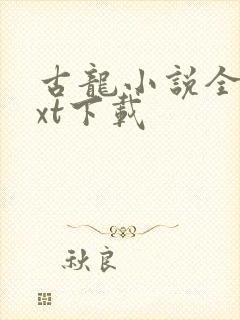 古龍小說全
xt下載
秋良